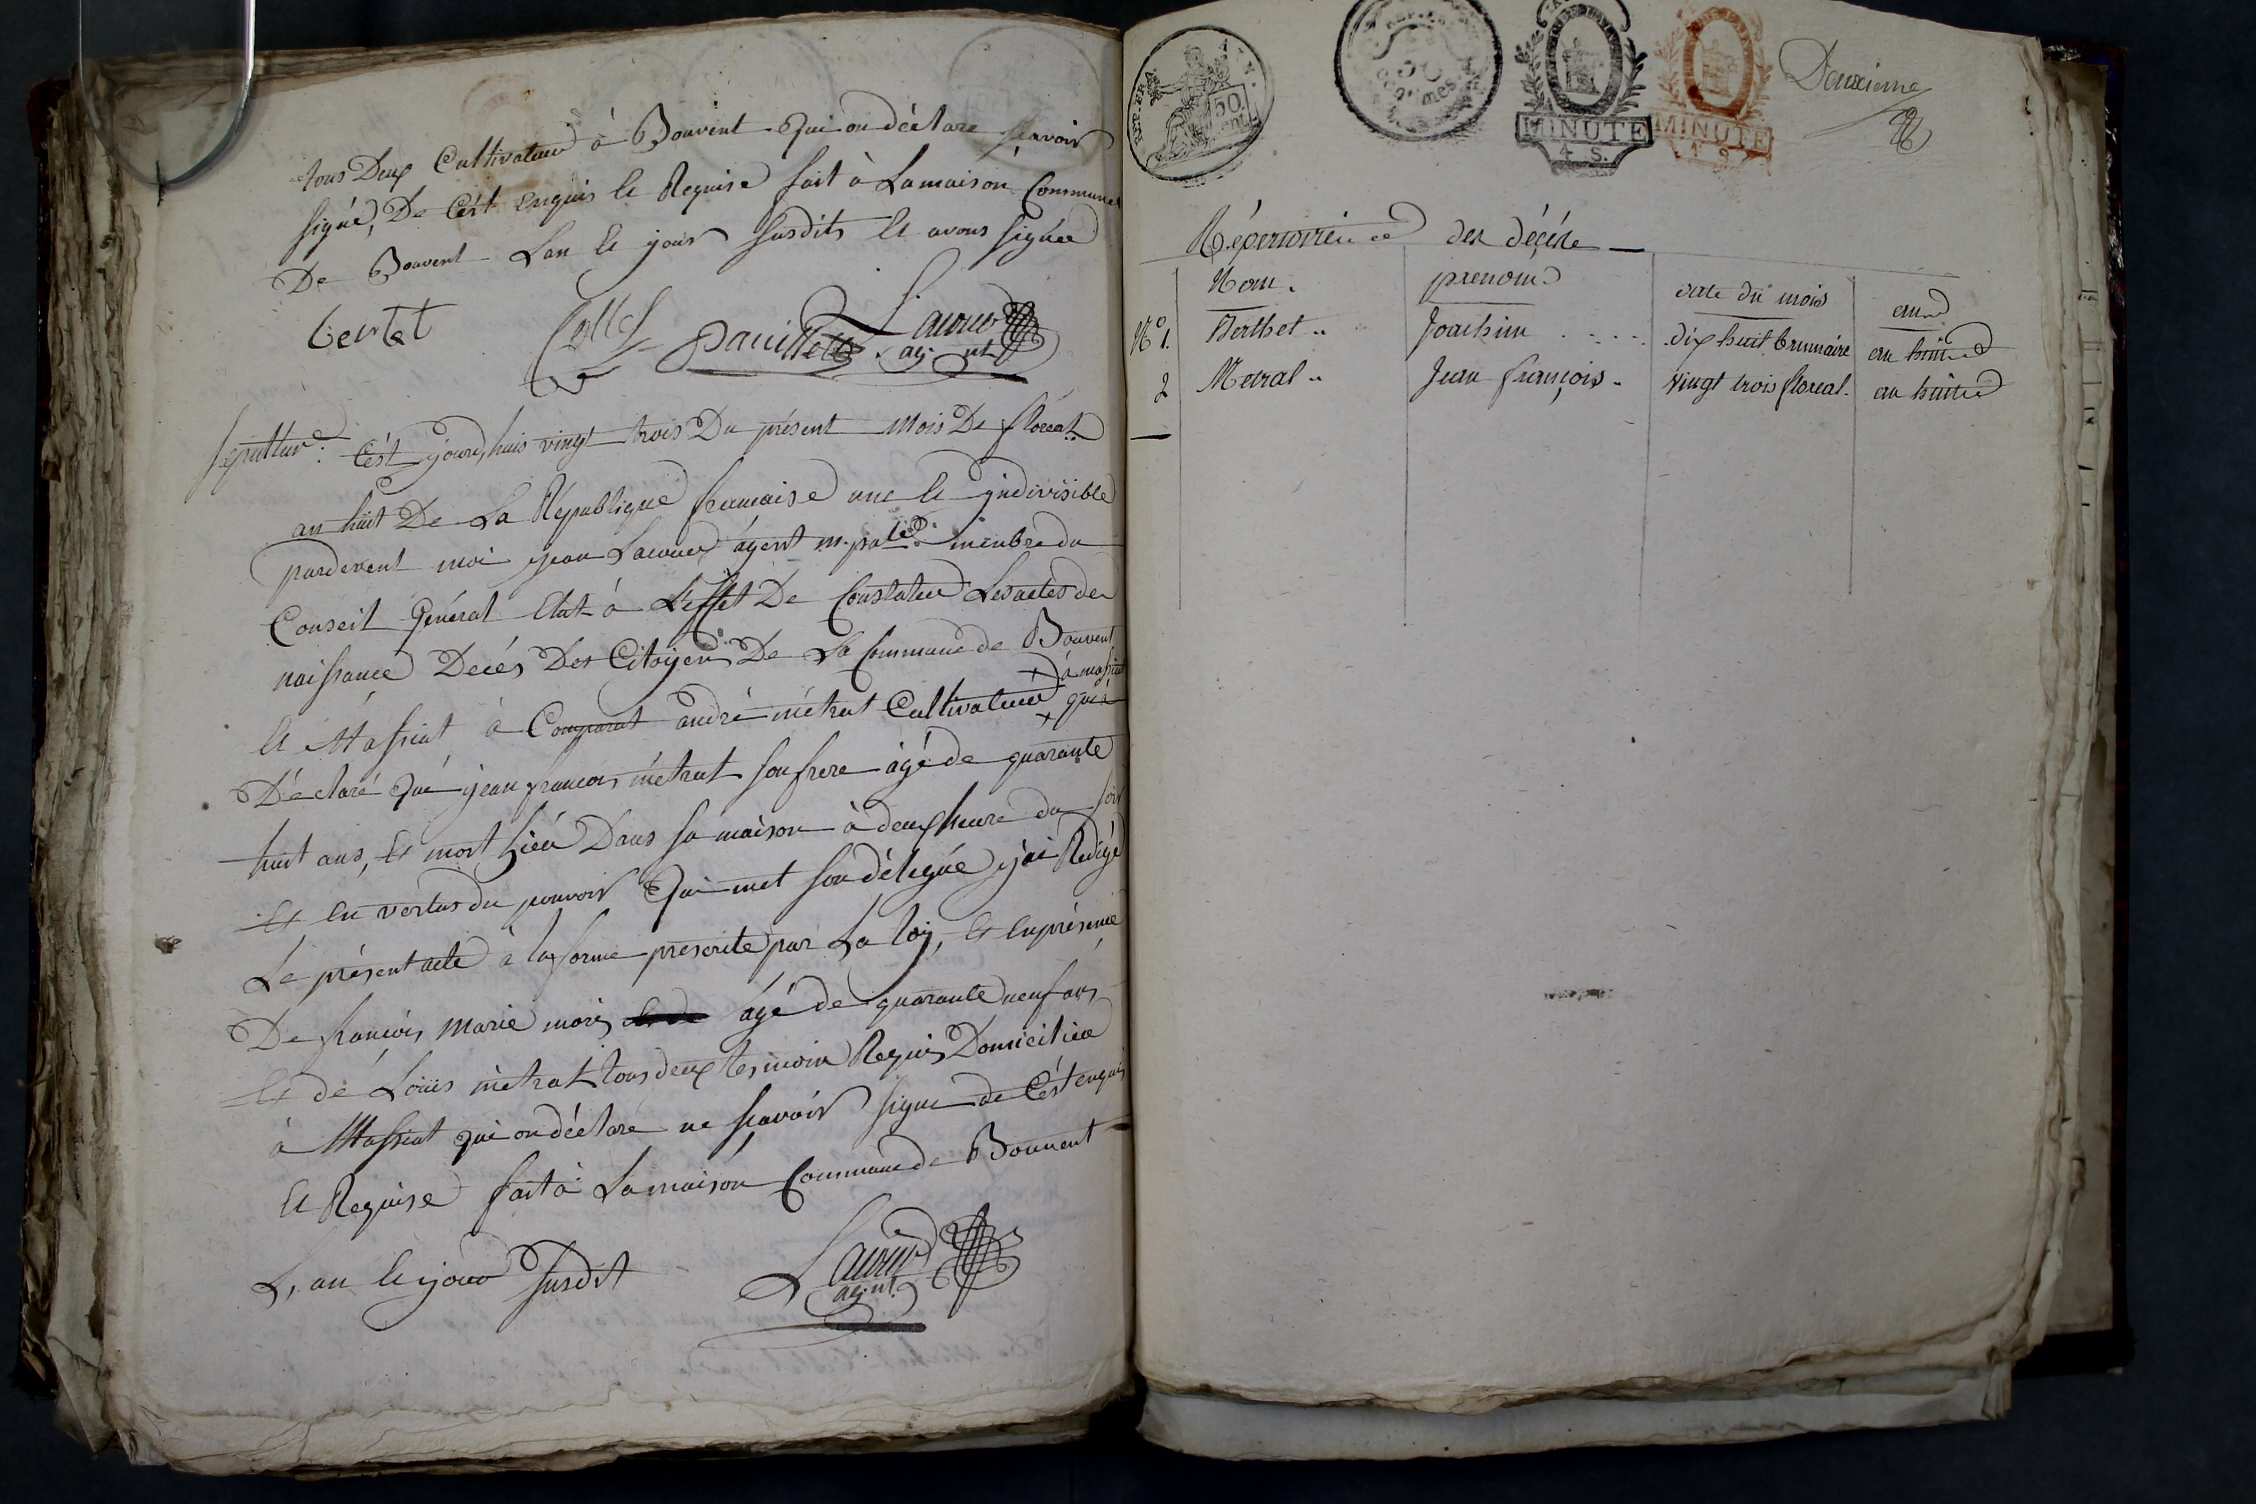 tous Deux Cultivateur à Bouvent Qui on déclare sçavoir
signé, De Cést Enquis Et Requise fait à Lamaison Commune
De Bouvent Lan Et jour susdits Et avons signée
bertet Collet pauillet Lacour
agent
sepulture. Cést jourd,huis vingt trois Du présent Mois De floreal
an huit De La République francaise une Et jndivisible
pardevent moi jean Lacour ágent m.pale. menbre du
Conseil Général Elut à L'effet De Constater Les actes de
naissance Decés Des Citoyens De La Commune de Bouvent
Et Massiat à Comparut andré métrat Cultivateur + qui à
+ à massiat
Déclaré Qué jean francois métrat son frere ágé de quarante
huit ans, Et mort hiér Dans sa maison à deux heure du soir
Et En vertus du pouvoir Qui met son délégué j'ai Redigé
Le présent acte à la forme prescrite par La loy, Et En présence
De francois Marie morei ágé de quarante neuf ans
Et dé Loüis métrat tous deux tesmoin Requis Domicilieé
à Massiat qui on déclaré ne scavoir signé de Cést enquis
Et Requise fait à La maison Commune de Bouvent
L, an Et jour susdit
Lacour
agent
REP. FR
50
cent.
50
MINUTE
4 S.
MINUTE
4 S.
Deuxieme
Répertoire des décéde
Nom. prenom date du mois anné
N° 1. Berthet .. Joachim dix huit brumaire an huit
2 Metral .. Jean françois .. Vingt trois floreal. an huit